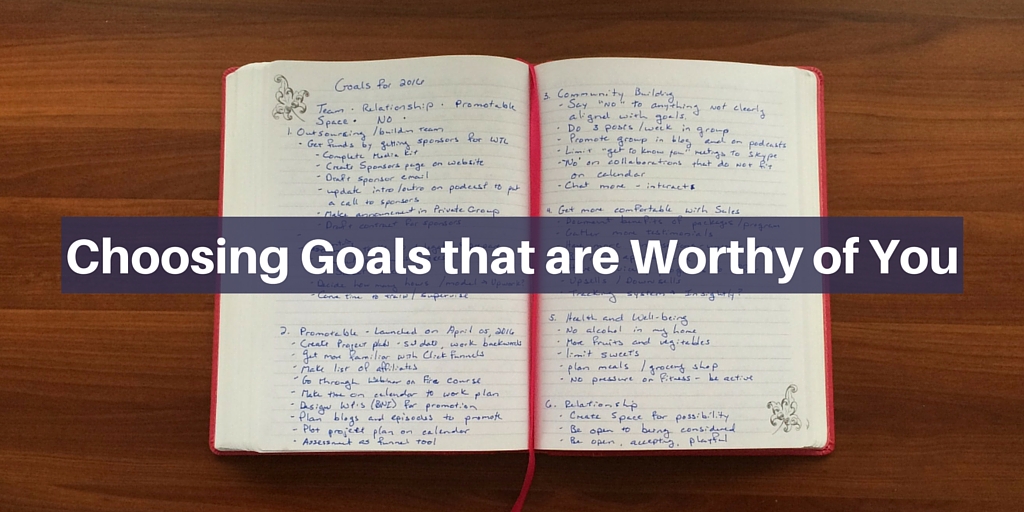 Goals for 2016
Team · Relationship · Promotable
Space · NO ·
1. Outsourcing / building team
- Get funds by getting sponsors for WTL
- Complete Media Kit
- Create Sponsors page on website
- Draft sponsor email
- update intro/outro on podcast to put
a call to sponsors
- Make announcement in Private Group
- Draft contract for sponsors
Choosing Goals that are Worthy of You
- Come time to train / supervise
2. Promotable - Launched on April 05, 2016
- Create Project plan - set date, work backwards
- Get more familiar with ClickFunnels
- Make list of affiliates
- Go through Webinar on Fire course
- Make time on calendar to work plan
- Design (BNI) for promotion
- Plan blogs and episodes to promote
- Plot project plan on calendar
- Assessment as funnel tool
3. Community Building
- Say "NO" to anything not clearly
aligned with goals.
- Do 3 posts/week in group
- Promote group in blog and on podcasts
- Limit "get to know you" meetings to skype
- "No" on collaborations that do not fit
on calendar
- Chat more - interact
4. Get more comfortable with Sales
- Document benefits of packages/program
- Gather more testimonials
- Upsells / Downsells
- Tracking system - Insightly?
5. Health and Well-being
- No alcohol in my home
- More fruits and vegetables
- limit sweets
- plan meals / grocery shop
- No pressure on fitness - be active
6. Relationship
- Create Space for possibility
- Be open to being considered
- Be open, accepting, playful